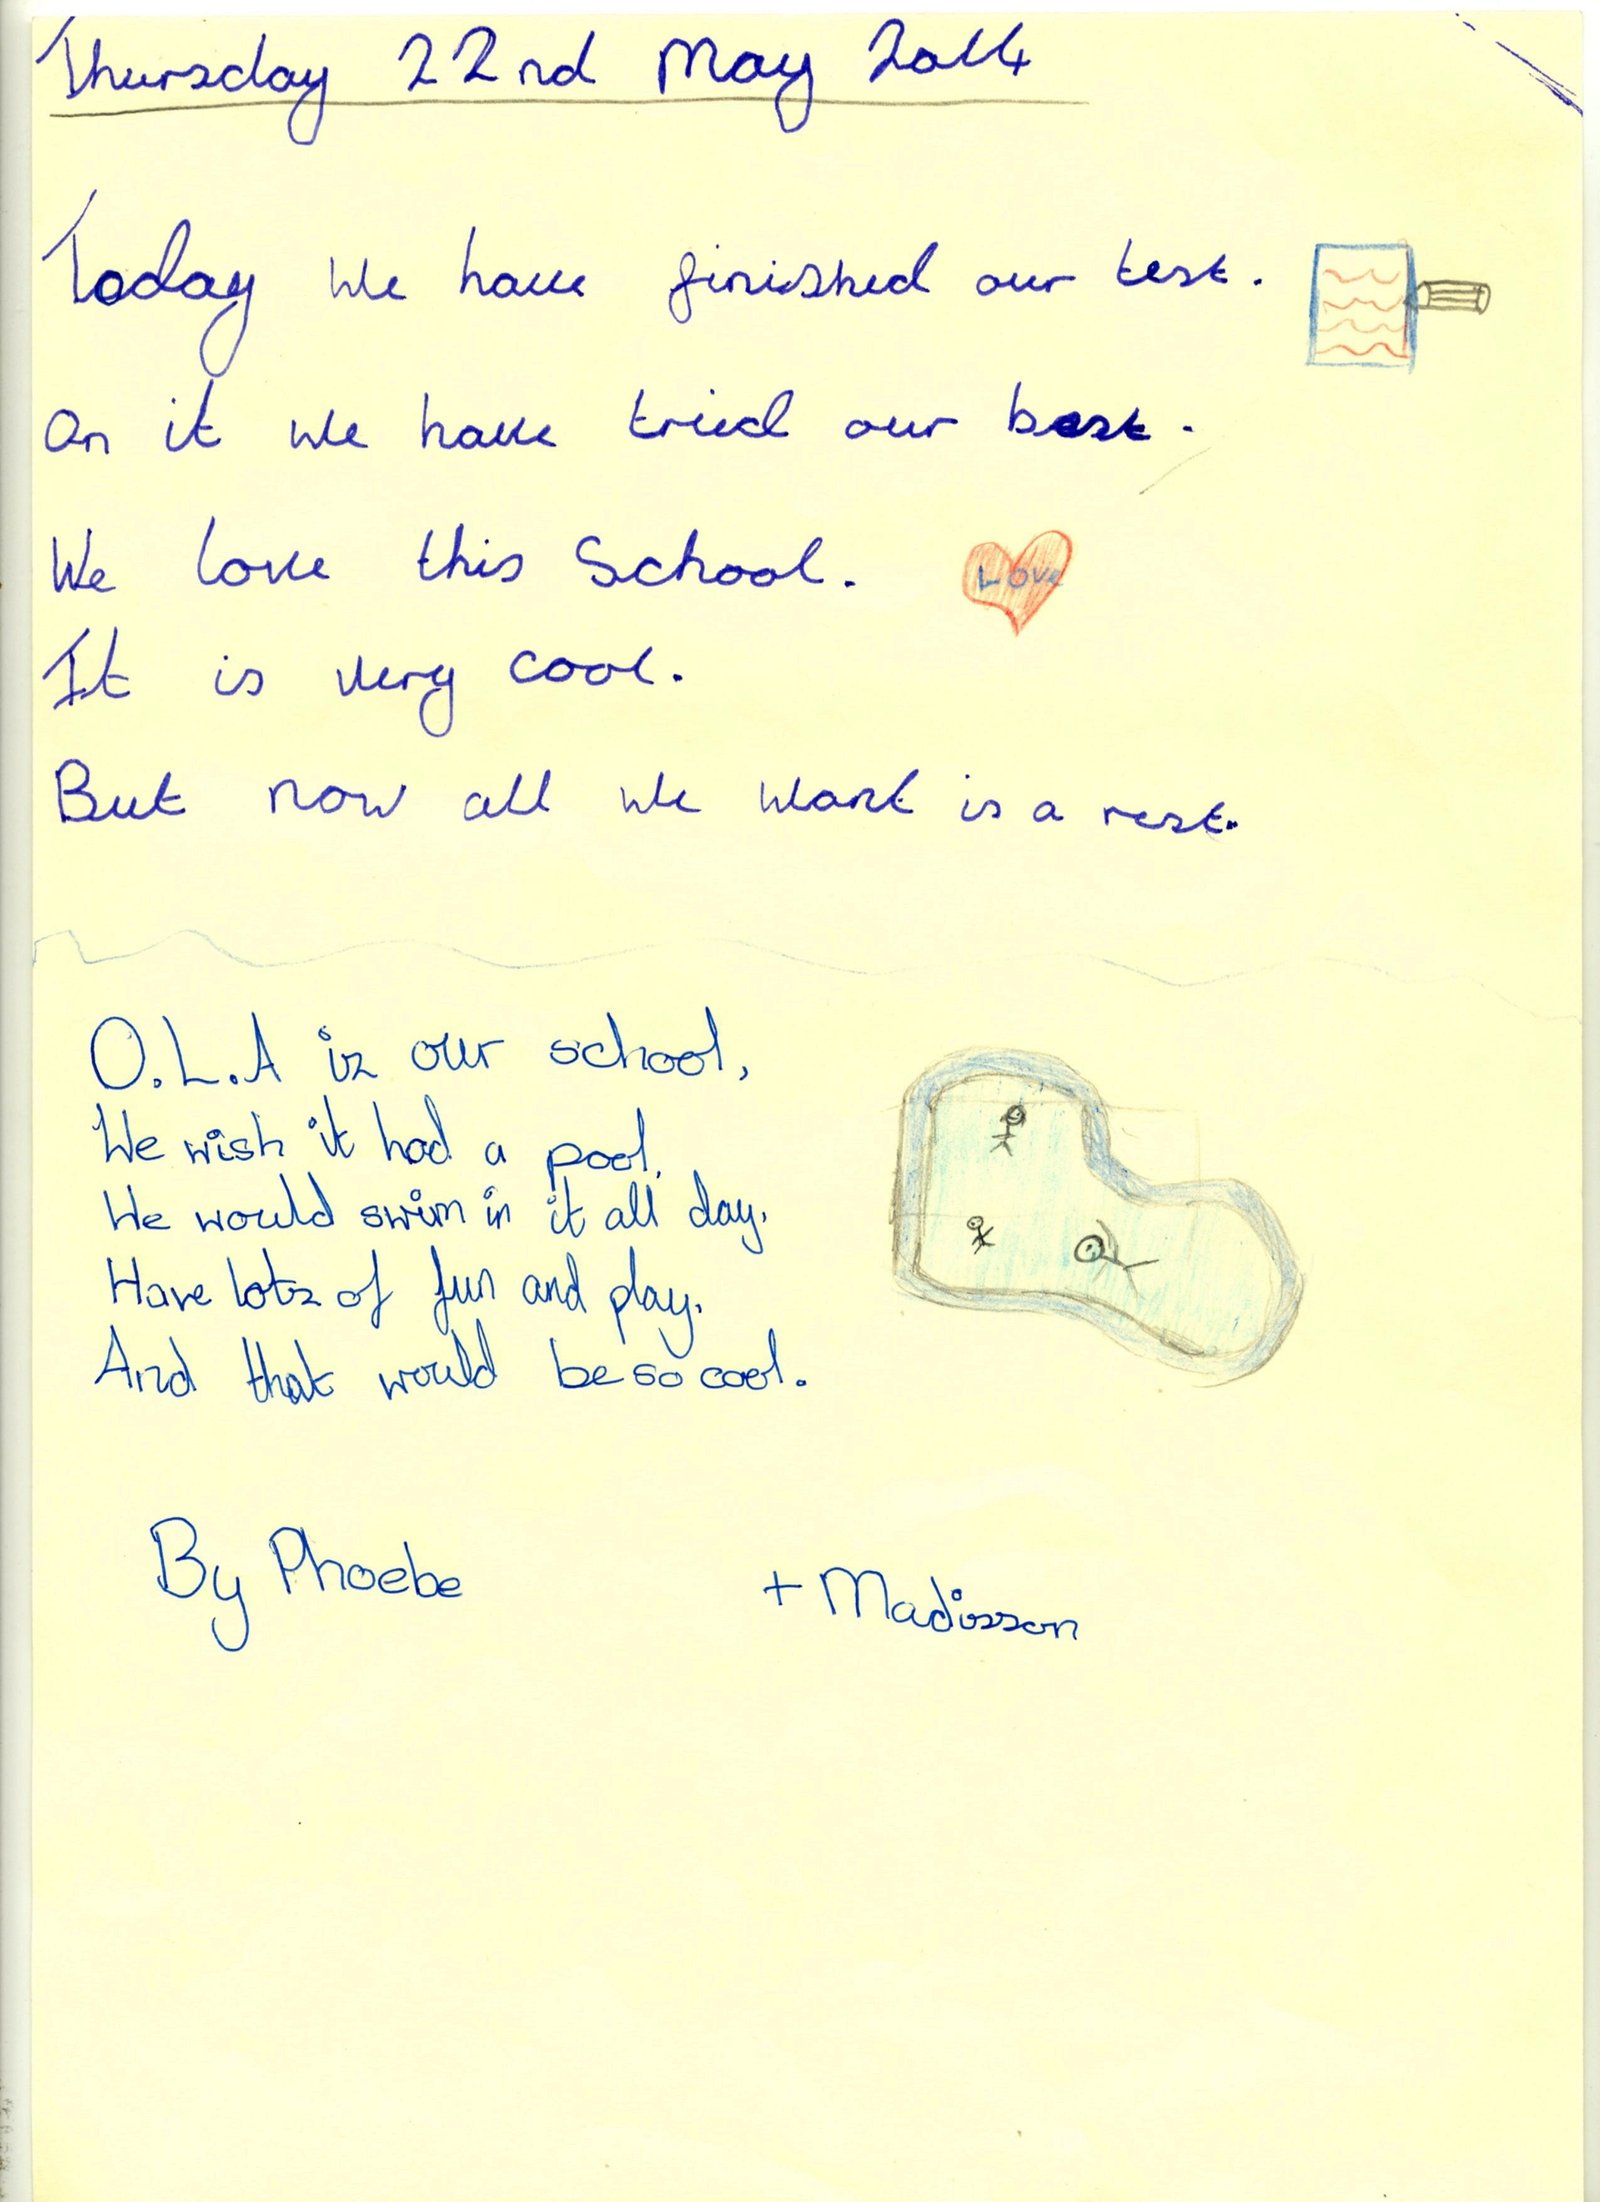 Thursday 22nd May 2014
Today we have finished our test.
On it we have tried our best.
We love this School.
LOVE
It is very cool.
But now all we want is a rest.
O.L.A is our school,
We wish it had a pool,
We would swim in it all day.
Have lots of fun and play.
And that would be so cool.
By Phoebe + Madisson